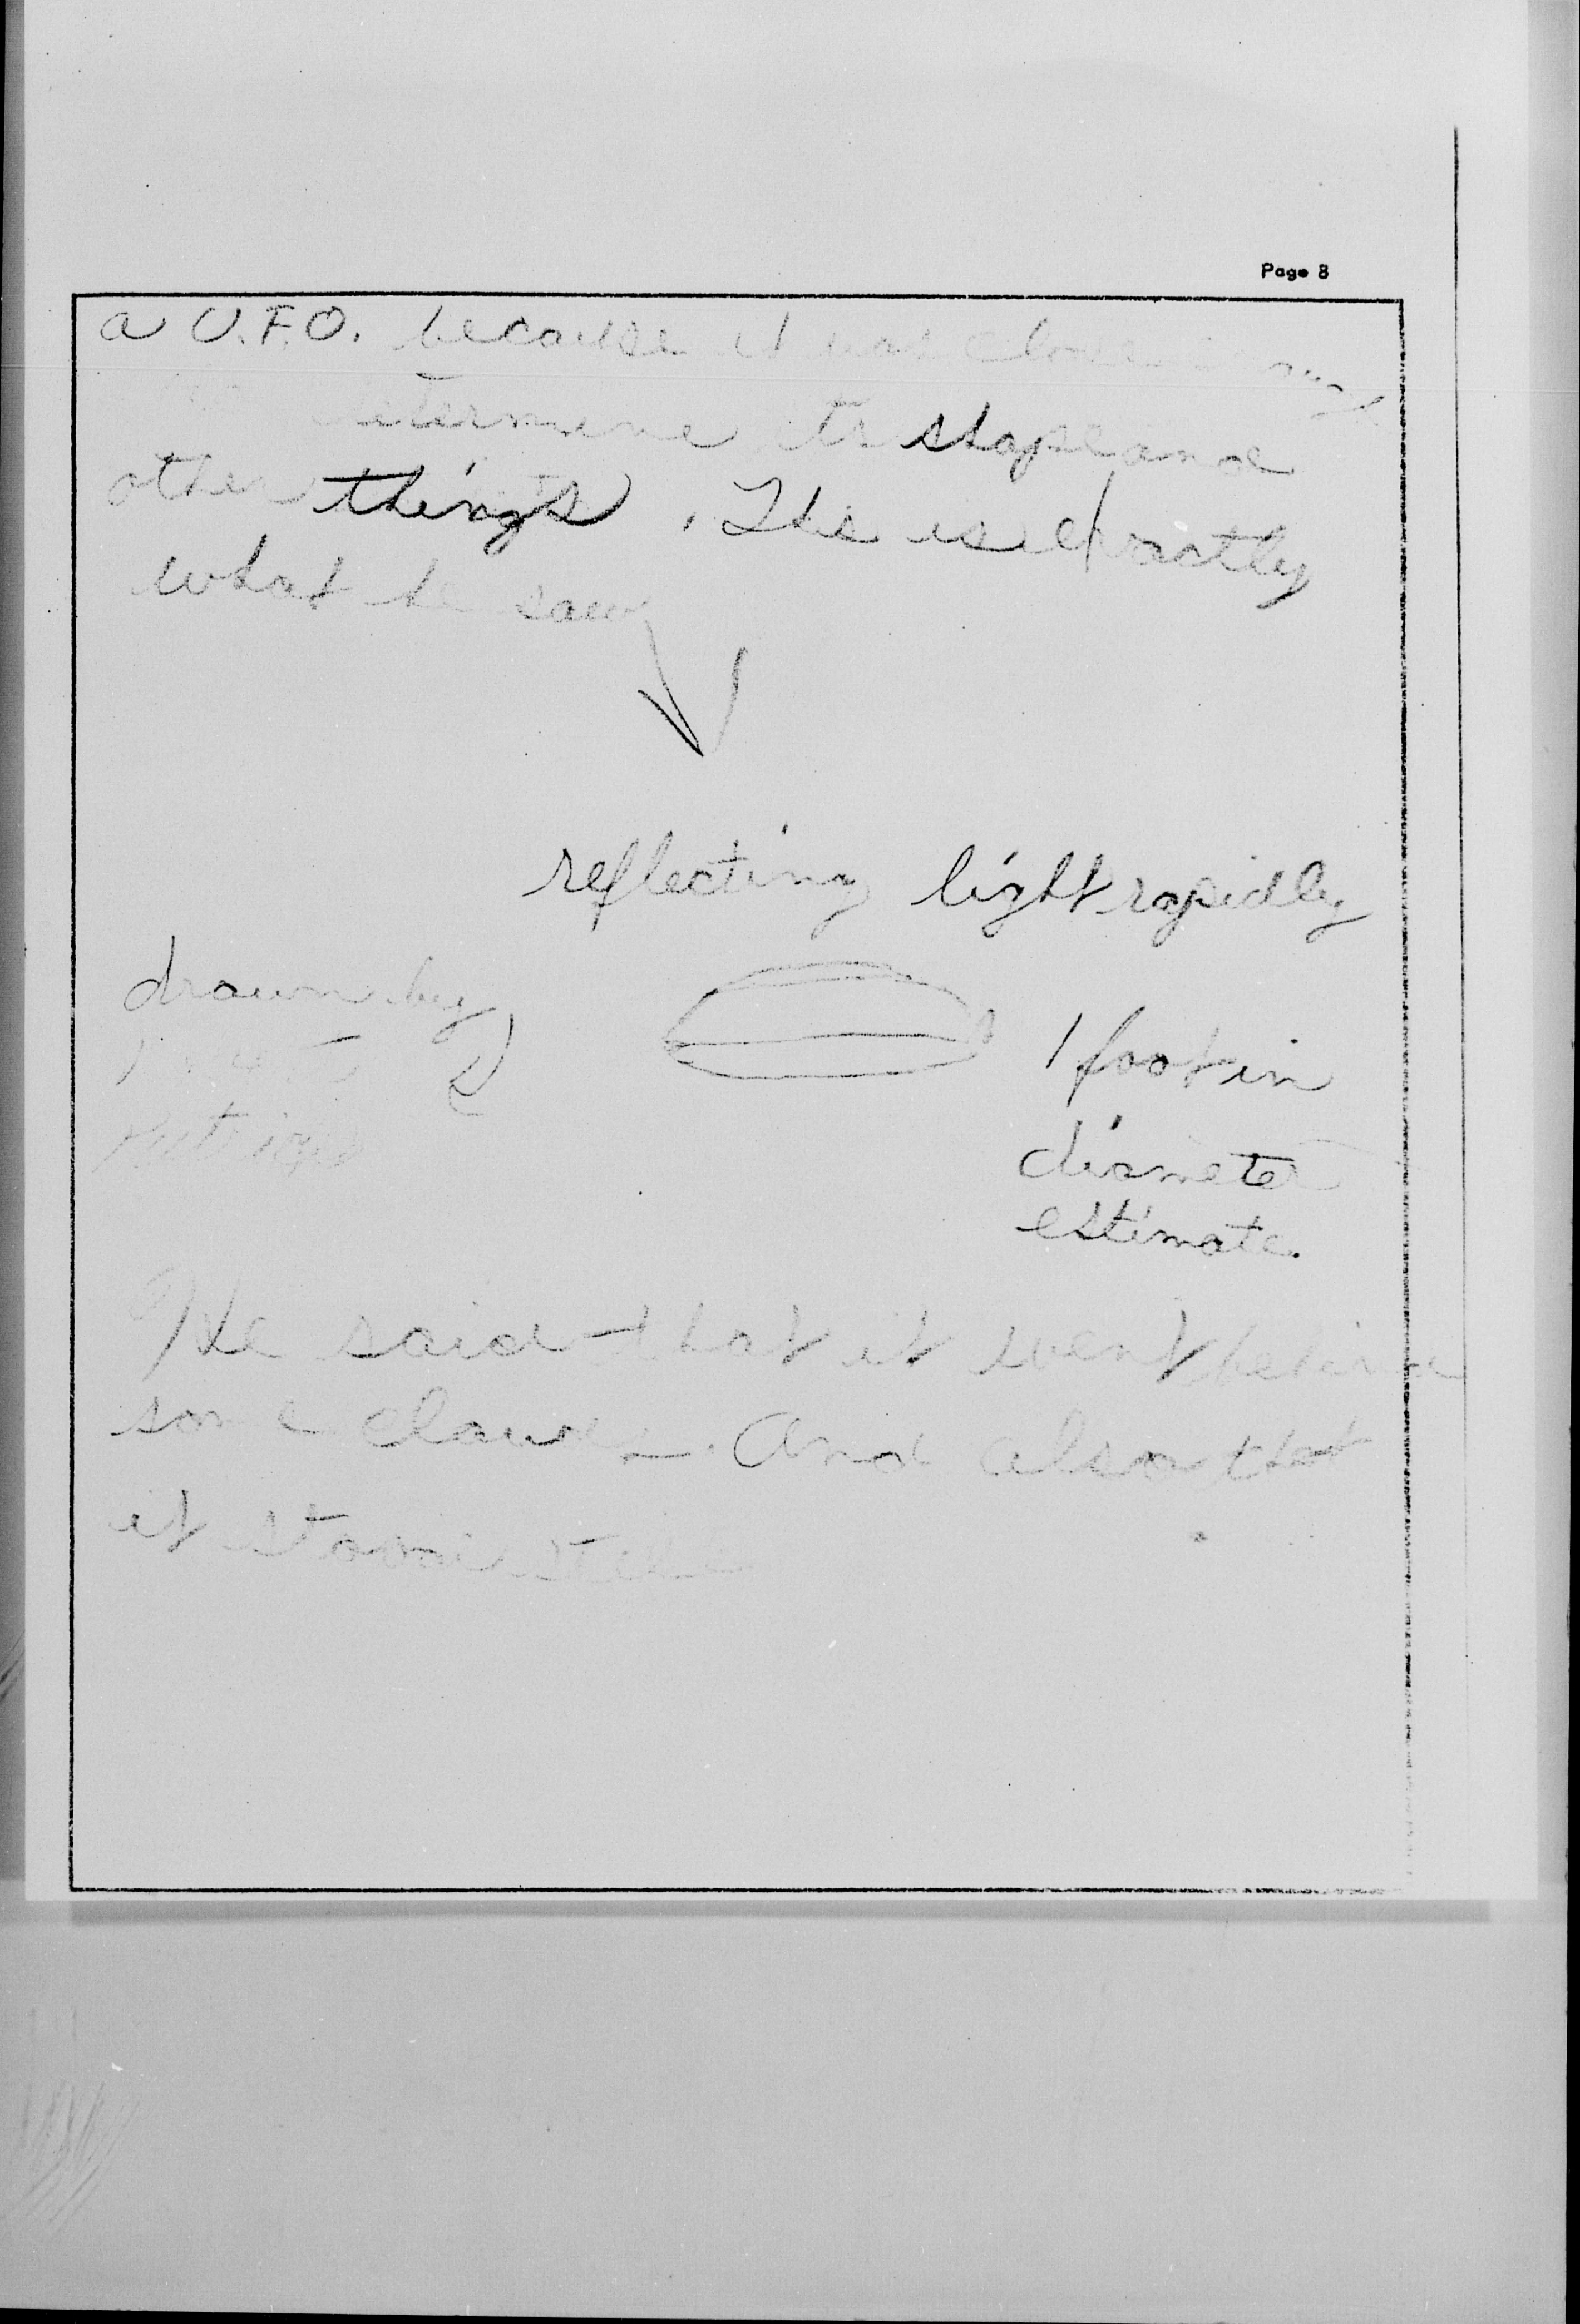 Page 8
a U.F.O. because it was close
determine its shape and
other things. This is exactly
what he saw
reflecting light rapidly
drawn by
1 foot in
diameter
estimate.
He said that it went behind
some clouds. And also that
it stood still